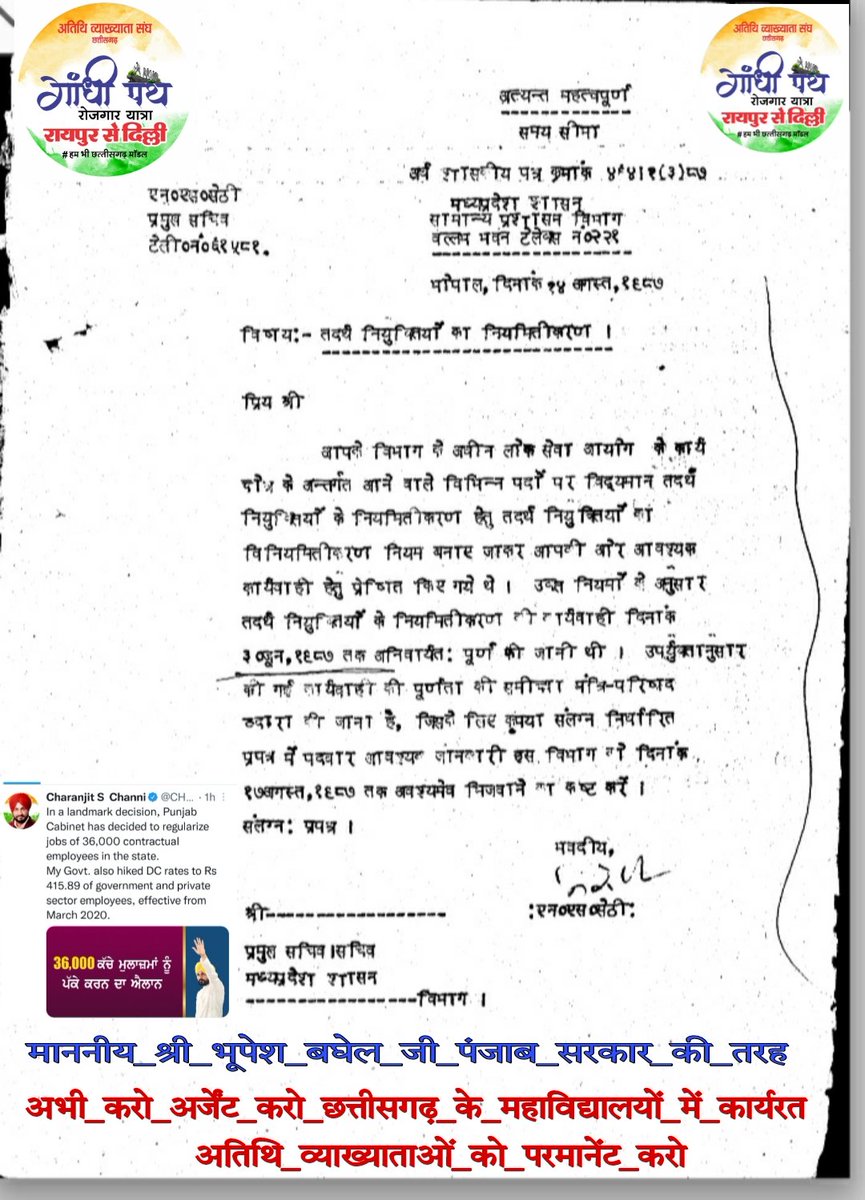 अतिथि व्याख्याता संघ
छत्तीसगढ़
गांधी पथ
रोजगार यात्रा
रायपुर से दिल्ली
# हम भी छत्तीसगढ़ मॉडल
अतिथि व्याख्याता संघ
छत्तीसगढ़
गांधी पथ
रोजगार यात्रा
रायपुर से दिल्ली
# हम भी छत्तीसगढ़ मॉडल
अत्यन्त महत्वपूर्ण
समय सीमा
अर्ध शासकीय पत्र क्रमांक
एन०एस०सेठी
प्रमुख सचिव
टेली०नं०६१५८१.
मध्यप्रदेश शासन
सामान्य प्रशासन विभाग
वल्लभ भवन टेलेक्स नं०२२१
भोपाल, दिनांक १४ अगस्त, १९८७
विषय:- तदर्थ नियुक्तियों का नियमितीकरण ।
प्रिय श्री
आपके विभाग के अधीन लोक सेवा आयोग के कार्य
क्षेत्र के अन्तर्गत आने वाले विभिन्न पदों पर विद्यमान तदर्थ
नियुक्तियों के नियमितीकरण हेतु तदर्थ नियुक्तियों का
विनियमितीकरण नियम बनाए जाकर आपकी ओर आवश्यक
कार्यवाही हेतु प्रेषित किए गये थे । उक्त नियमों के अनुसार
तदर्थ नियुक्तियों के नियमितीकरण की कार्यवाही दिनांक
३०जून, १९८७ तक अनिवार्यत: पूर्ण की जानी थी । उपर्युक्तानुसार
की गई कार्यवाही की पूर्णता की समीक्षा मंत्रि-परिषद
व्दारा की जाना है, जिसके लिए कृपया संलग्न निर्धारित
प्रपत्र में पदवार आवश्यक जानकारी इस विभाग को दिनांक
१७अगस्त, १९८७ तक अवश्यमेव भिजवाने का कष्ट करें ।
संलग्न: प्रपत्र ।
भवदीय,
:एन०एस०सेठी:
श्री------------------
प्रमुख सचिव।सचिव
मध्यप्रदेश शासन
-----------------विभाग ।
Charanjit S Channi @CH... · 1h
In a landmark decision, Punjab
Cabinet has decided to regularize
jobs of 36,000 contractual
employees in the state.
My Govt. also hiked DC rates to Rs
415.89 of government and private
sector employees, effective from
March 2020.
36,000 ਕੱਚੇ ਮੁਲਾਜ਼ਮਾਂ ਨੂੰ
ਪੱਕੇ ਕਰਨ ਦਾ ਐਲਾਨ
माननीय_श्री_भूपेश_बघेल_जी_पंजाब_सरकार_की_तरह
अभी_करो_अर्जेंट_करो_छत्तीसगढ़_के_महाविद्यालयों_में_कार्यरत
अतिथि_व्याख्याताओं_को_परमानेंट_करो